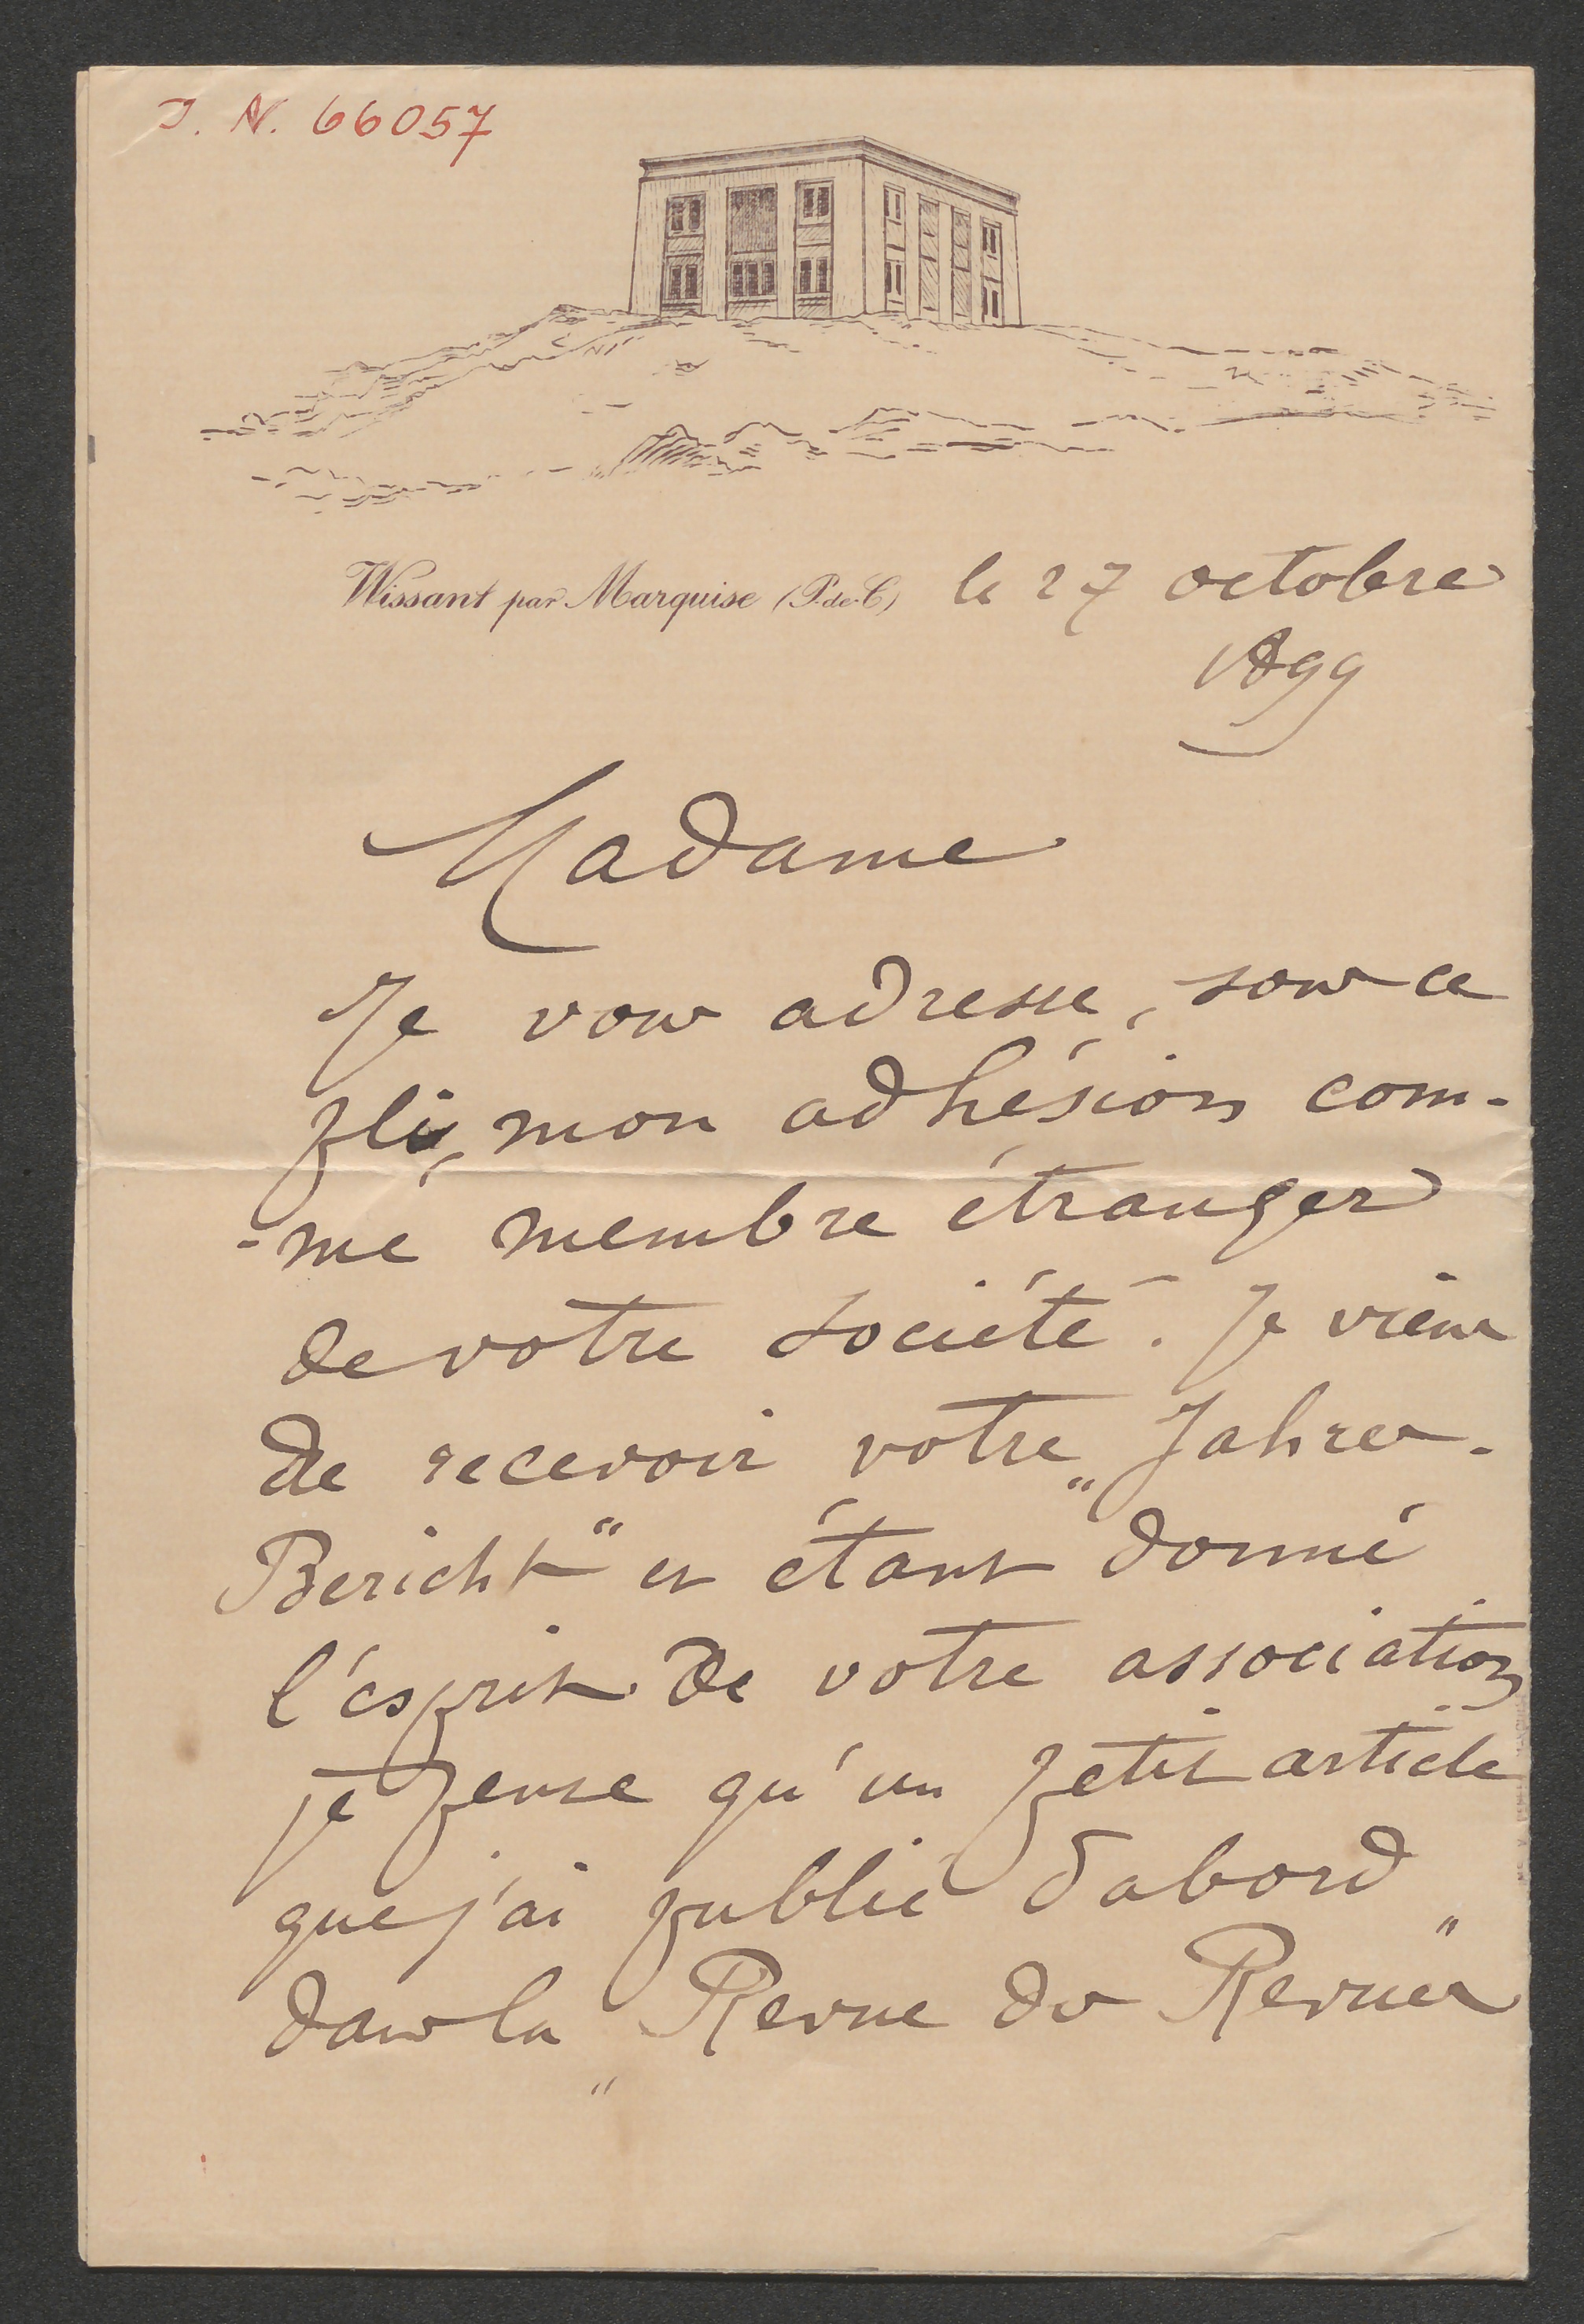 J. N. 66057
Wissant par Marquise (P-de-C) le 27 octobre
1899
Madame
Je vous adresse, sous ce
pli, mon adhésion com-
-me membre étranger
de votre société. Je viens
de recevoir votre „Jahres-
Bericht“ et étant donné
l'esprit de votre association
je pense qu'un petit article
que j'ai publié d'abord
dans la „Revue des Revues“